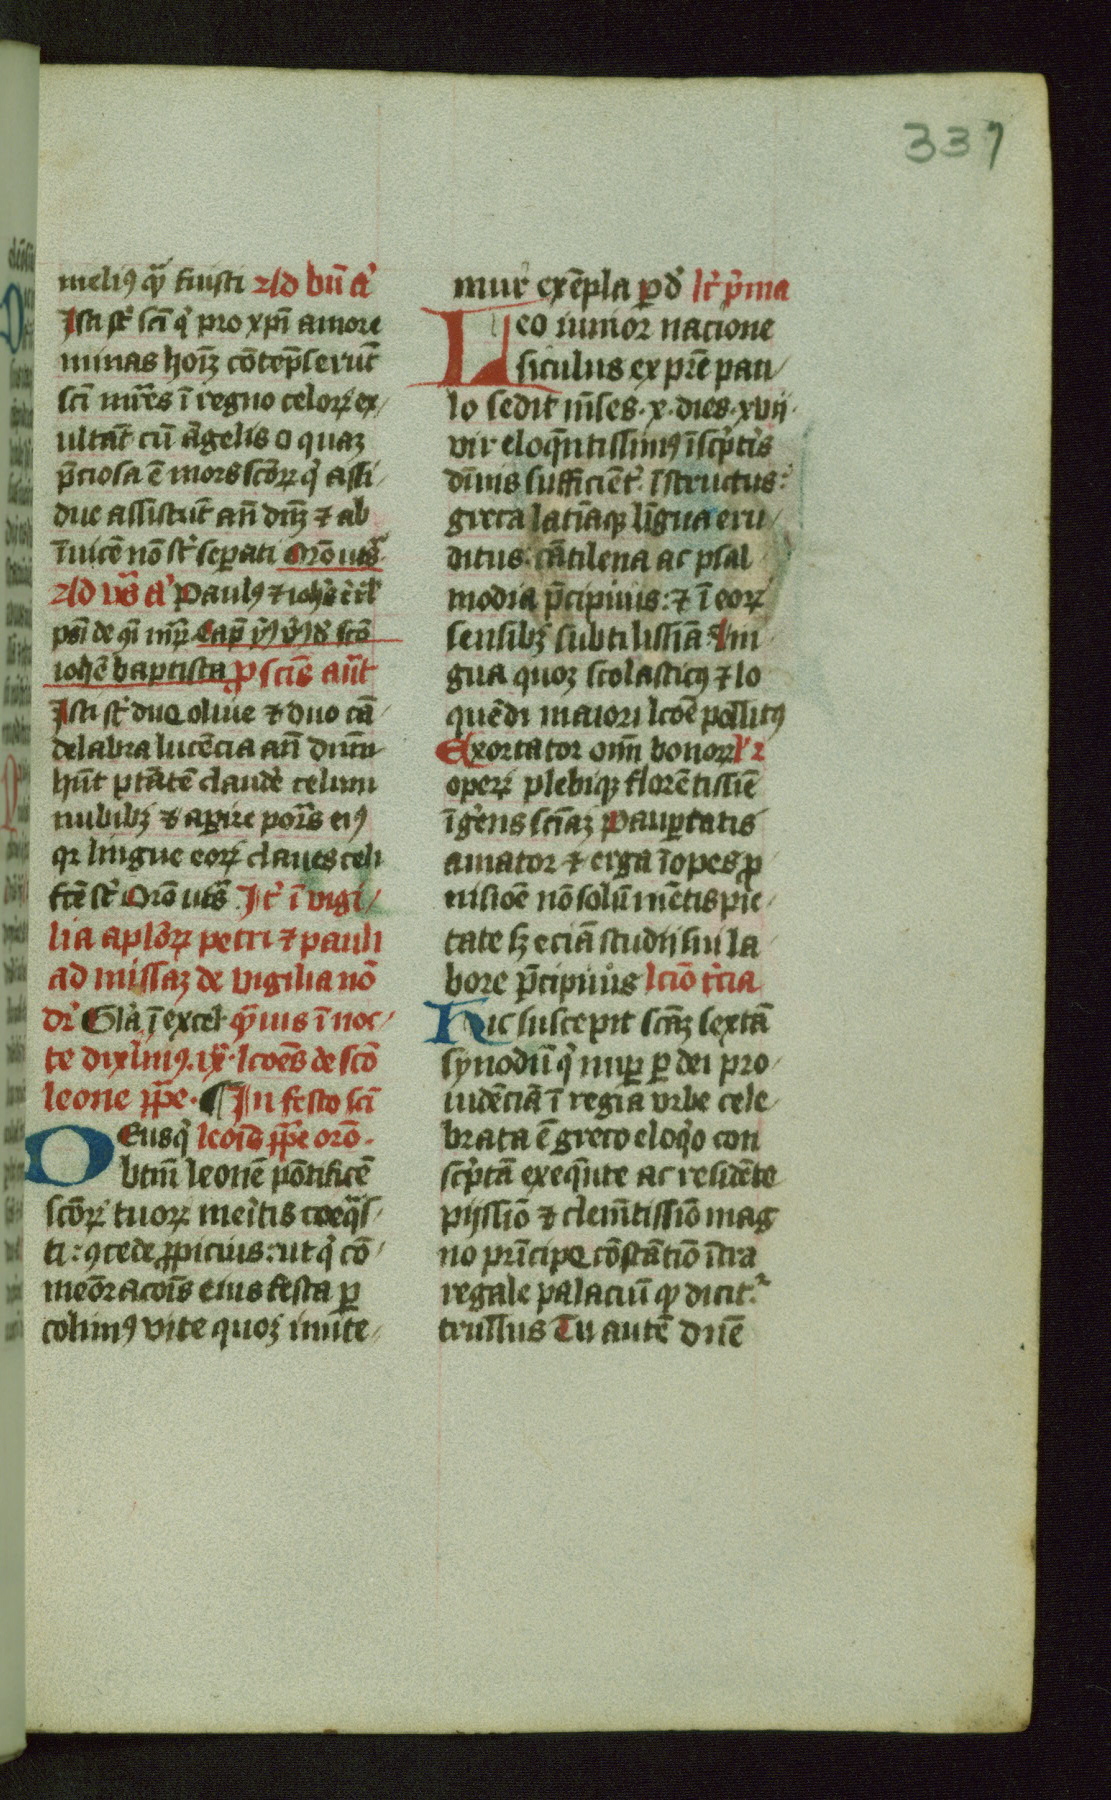 337
meli9 qͣ fiusti Ad bn̄ a͛
Isti st͛ sci q͛ pro xp̄i amore
minas hoīʒ cōtēpserūt
sc̄i mr̄es ī regno celoꝝ ex
ultāt cū āgelis O quaʒ
p̄ciosa ē mors sc̄oꝝ q͛ assi
due assistūt an̄ dn̄ʒ ⁊ ab
īuicē nō st͛ sep̲ati Orō uts͛
Ad vs͛ a͛ Paul9 ⁊ ioh̄s
iohē baptista ꝓ sc̄is an̄t
Isti st͛ due oliue ⁊ duo cā
delabra lucēcia an̄ dnm̄
hn̄t ptātē claudē celum
nubibʒ ⁊ aꝑire port͛s ei9
qꝛ lingue eoꝝ claues celi
fcē st͛ Orō uts͛ It͛ ī vigi
lia aplōꝝ petri ⁊ pauli
ad missaʒ de vigilia nō
dr͛ Glā ī excel͛ qͣmus ī noc
te dixīm9 .ix. lcoēs de scō
leone pp̄e · ¶ In festo sci
Deus q͛ leoīs pp̄e orō.
btm̄ leonē pōtificē
scōꝝ tuoꝝ meritis coeqͣs
ti : ꝯcede ꝓpicius : ut q͛ cō
meōracōis eius festa ꝑ
colim9 vite quoʒ imite
mur exēpla ꝑ d͛ lc͛ p̄ma
Leo iunior nacione
siculus ex pr̄e pau
lo sedit m̄ses · x · dies · xvij ·
vir eloqn̄tissim9 ī sc̄ptis
diuīs sufficiēt͛ īstructus :
greca latīaqꝫ līgua eru
ditus : cātilena ac psal
modia p̄cipuus : ⁊ ī eoꝝ
sensibʒ subtilissiā līn
gua quoʒ scolastic9 ⁊ lo
quēdi maiori lcoē pollit9
Exortator om̄ bonoꝝ
opeꝝ plebiqꝫ florētissiē
īgēns sciāʒ Pauꝑtatis
amator ⁊ erga īopes ꝓ
uisioē nō solū mētis pie
tate sʒ eciā studij sui la
bore p̄cipuus lcīo t͛cia
Hic suscepit sc̄āʒ sextā
synodū q͛ nuꝑ ꝑ dei pro
uidēciā ī regia vrbe cele
brata ē greco eloq͛o con
sc̄ptā exeqn̄te ac residēte
pijssīo ⁊ clemētissīo mag
no prīcipe cōstātīo īt͛a
regale palaciū qͣ dicit͛
trullus Tu autē dnē